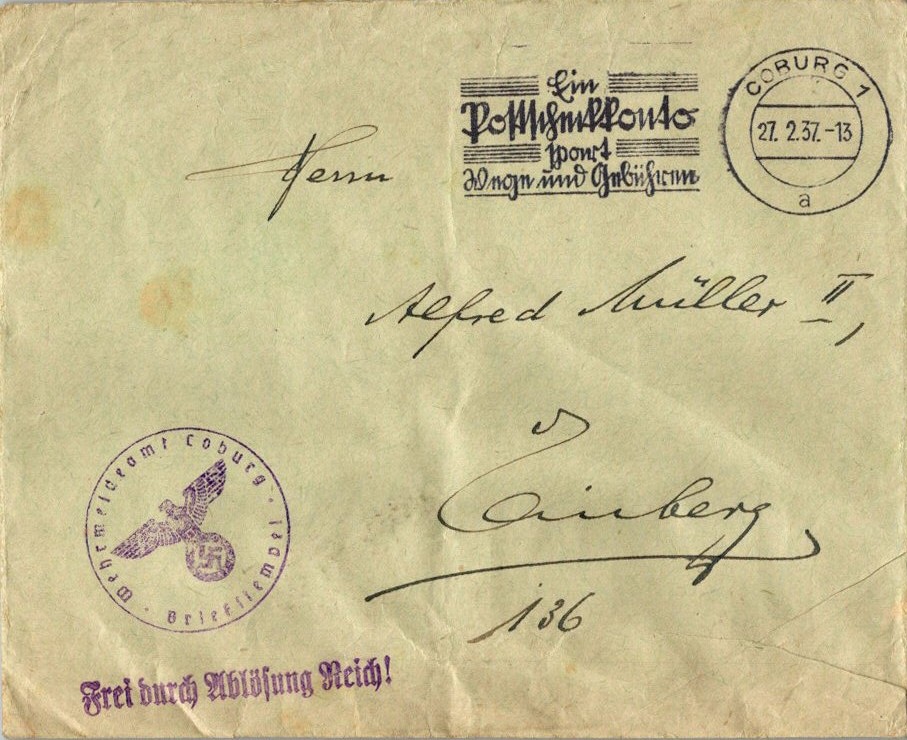 Ein
Postscheckkonto
spart
Wege und Gebühren
COBURG 1
27. 2.37.-13
a
Herrn
Alfred Müller II,
Einberg
136
Wehrmeldeamt Coburg · Briefstempel ·
Frei durch Ablösung Reich!